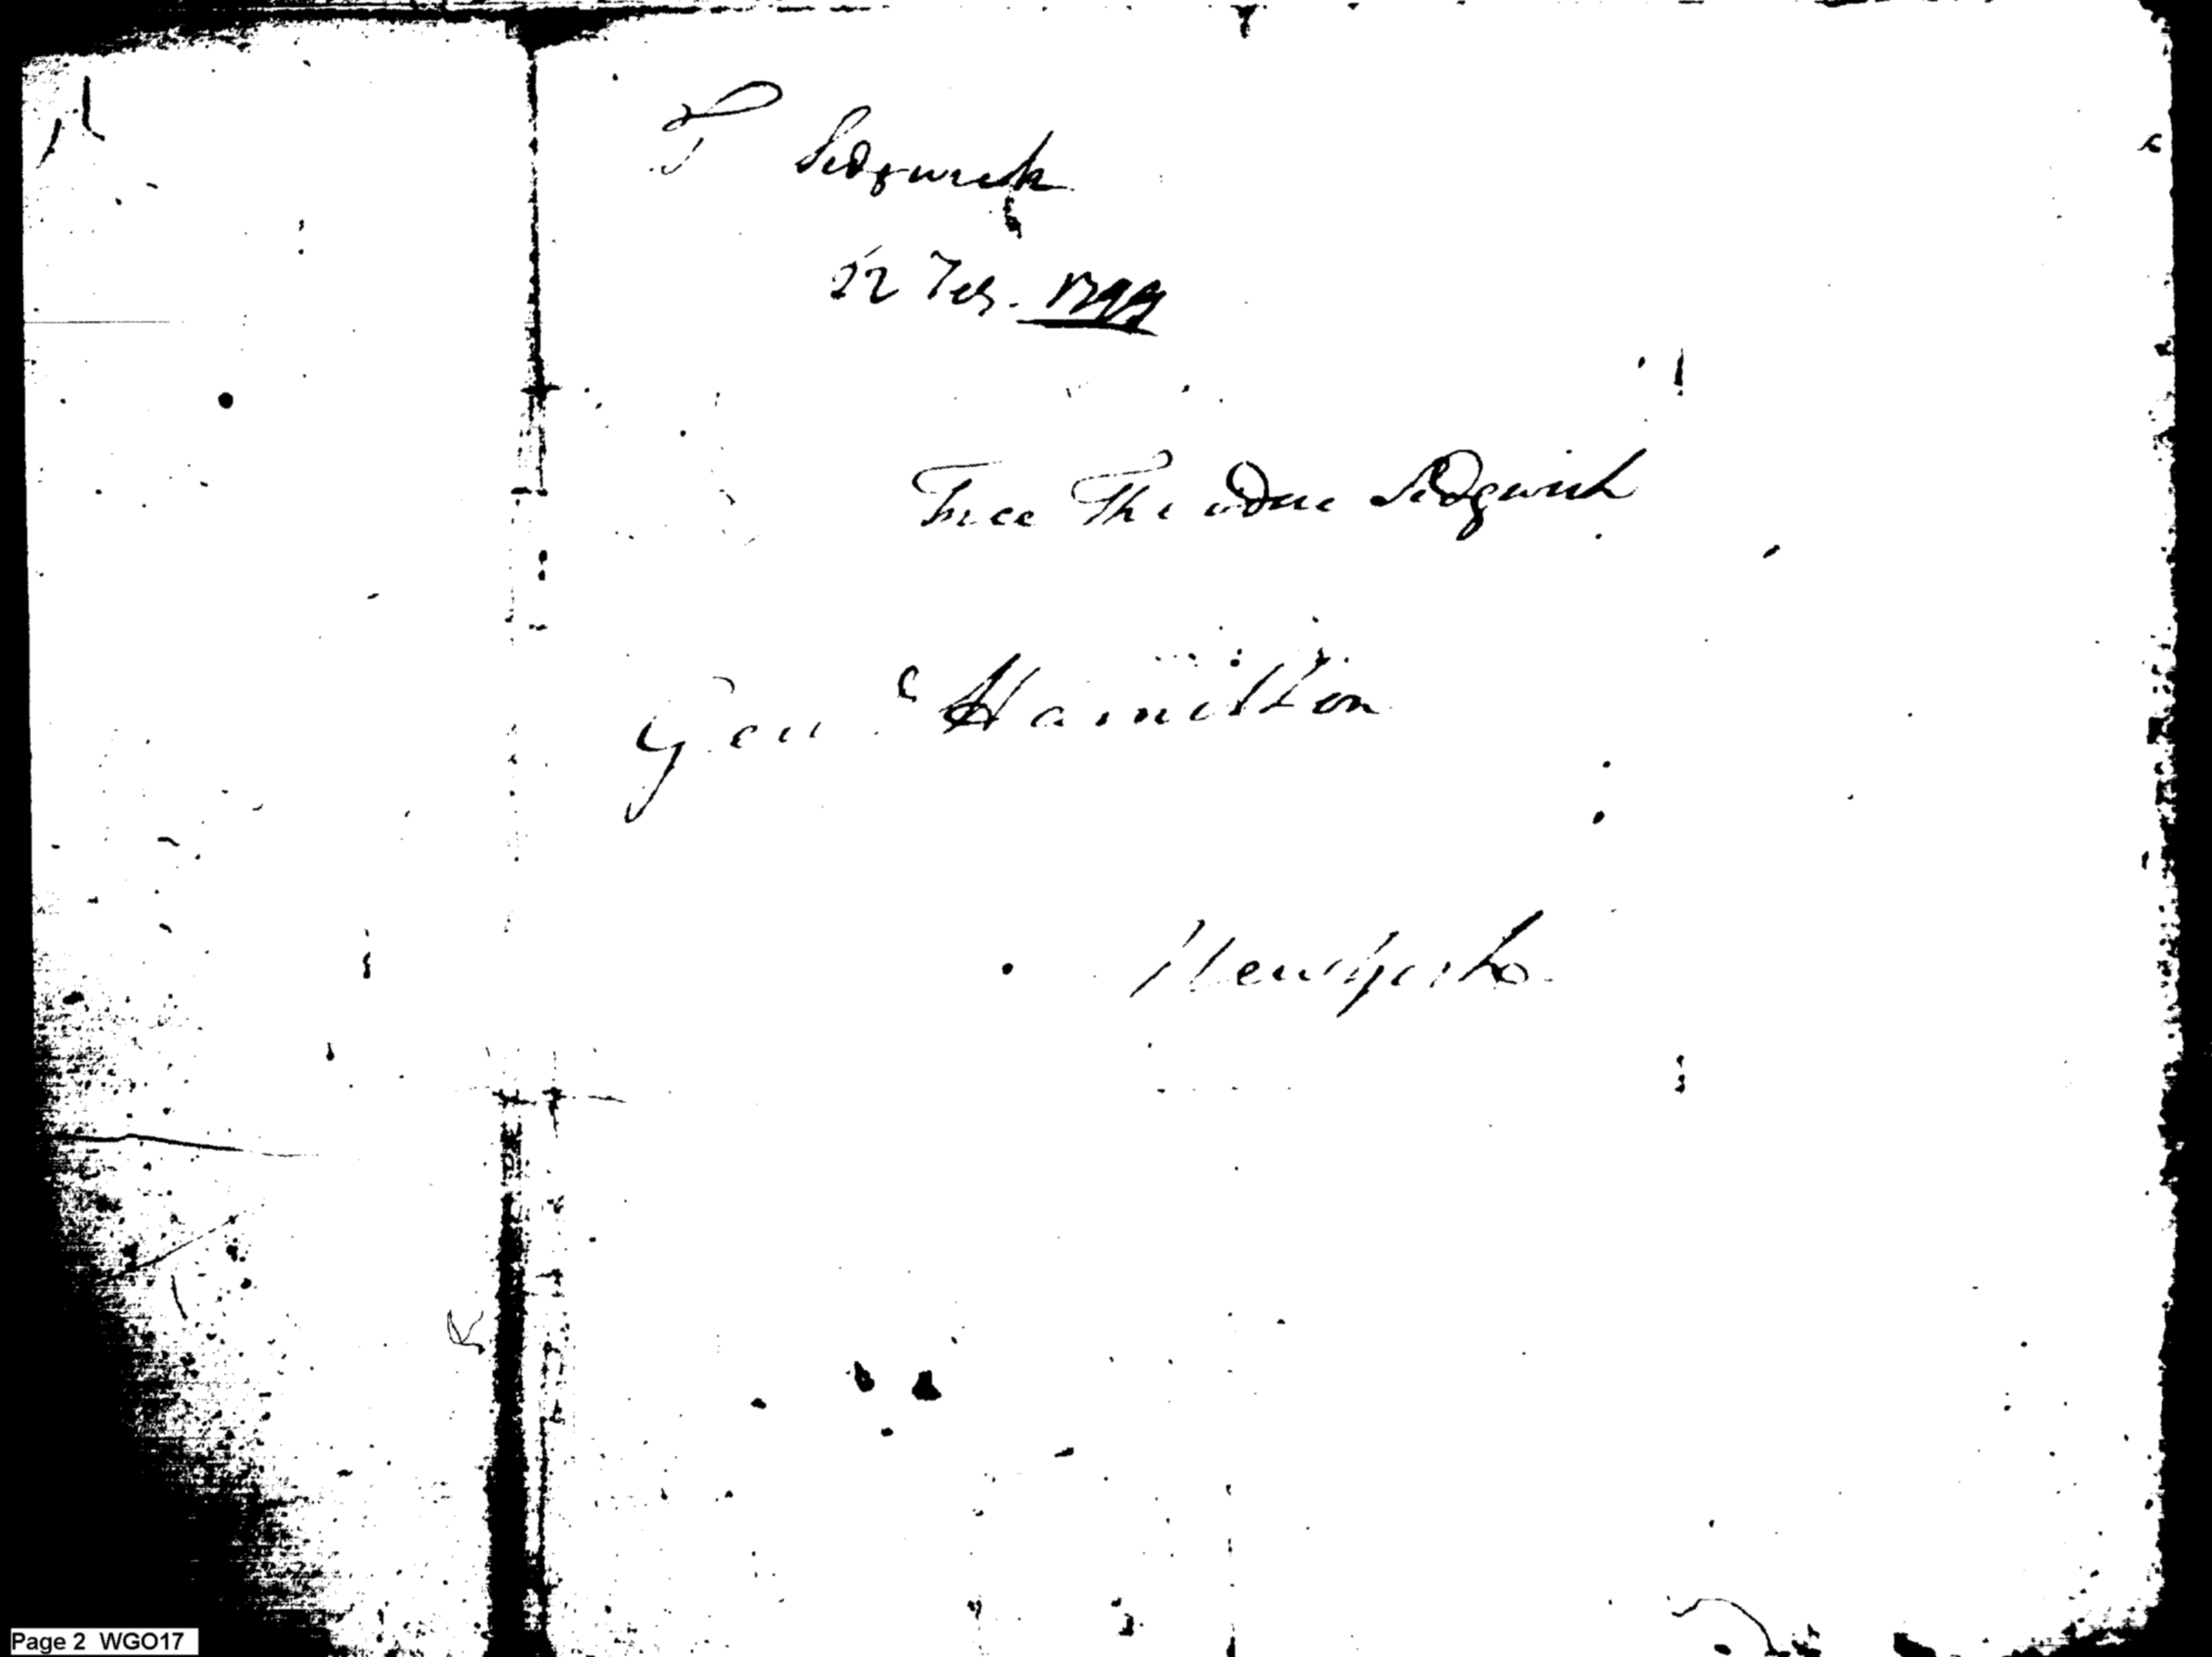 T Sedgwick
22 Feb. 1799
Free Theodore Sedgwick
Genl Hamilton
Newyork
Page 2 WGO17